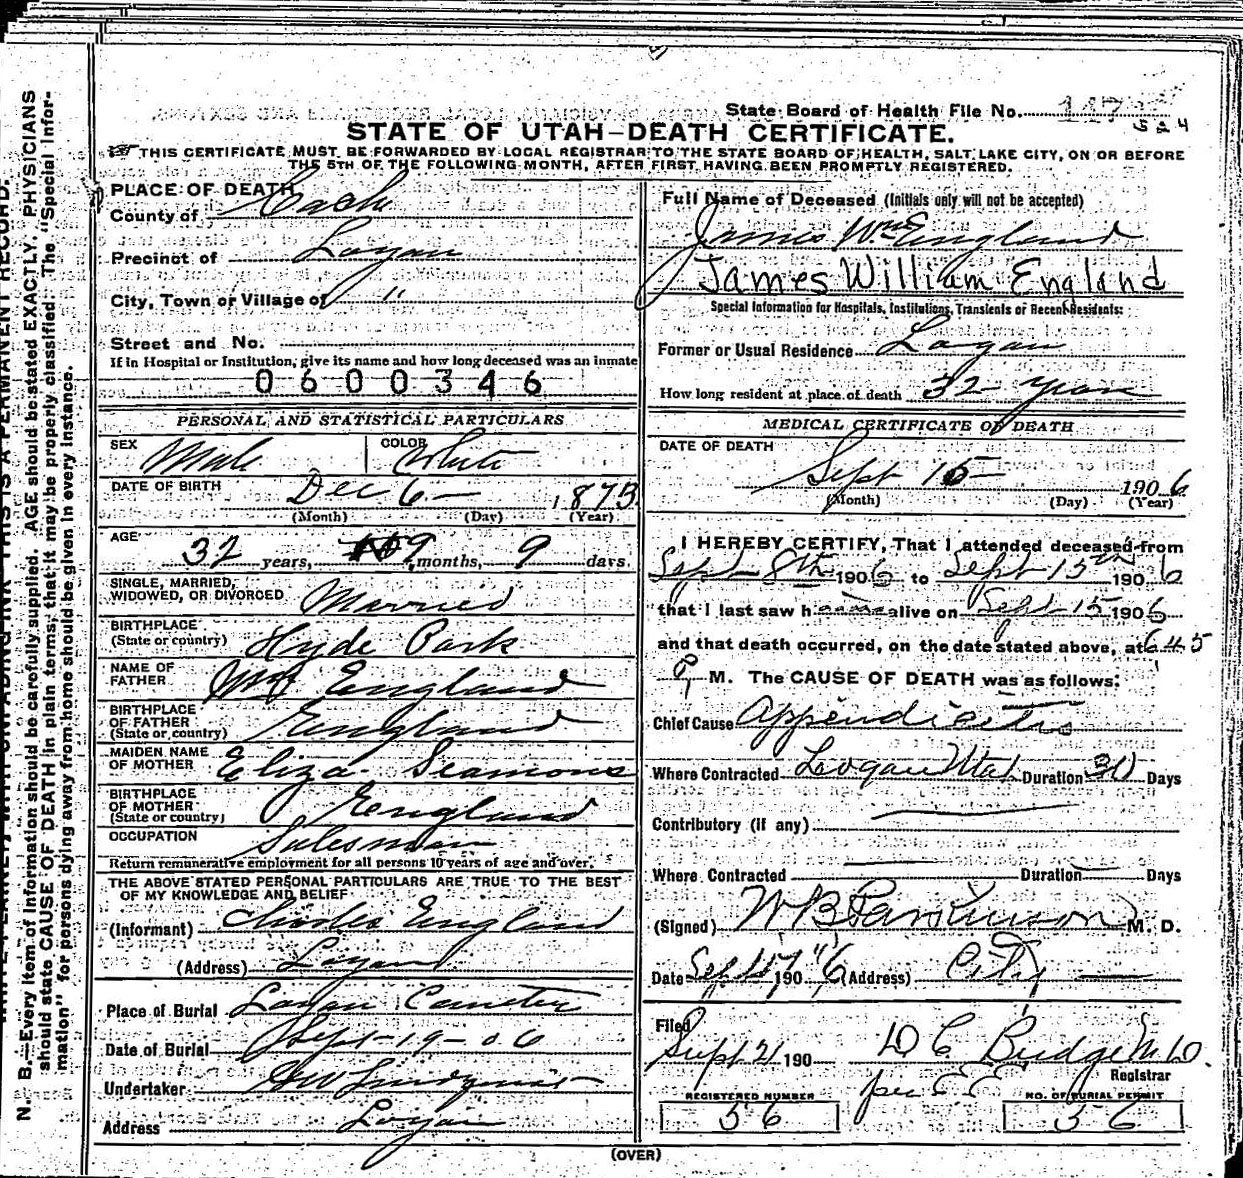 State Board of Health File No. 147
524
STATE OF UTAH—DEATH CERTIFICATE.
THIS CERTIFICATE MUST BE FORWARDED BY LOCAL REGISTRAR TO THE STATE BOARD OF HEALTH, SALT LAKE CITY, ON OR BEFORE
THE 5TH OF THE FOLLOWING MONTH, AFTER FIRST HAVING BEEN PROMPTLY REGISTERED.
N. B.—Every item of information should be carefully supplied. AGE should be stated EXACTLY. PHYSICIANS
should state CAUSE OF DEATH in plain terms, that it may be properly classified. The "Special Infor-
mation" for persons dying away from home should be given in every instance.
PLACE OF DEATH
County of Cache
Precinct of Logan
City, Town or Village of "
Street and No.
If in Hospital or Institution, give its name and how long deceased was an inmate
0600346
PERSONAL AND STATISTICAL PARTICULARS
SEX Male COLOR White
DATE OF BIRTH Dec 6 — 1873
(Month) (Day) (Year)
AGE 32 years, 9 months, 9 days.
SINGLE, MARRIED,
WIDOWED, OR DIVORCED Married
BIRTHPLACE
(State or country) Hyde Park
NAME OF
FATHER Wm England
BIRTHPLACE
OF FATHER
(State or country) England
MAIDEN NAME
OF MOTHER Eliza Seamons
BIRTHPLACE
OF MOTHER
(State or country) England
OCCUPATION Salesman
Return remunerative employment for all persons 10 years of age and over.
THE ABOVE STATED PERSONAL PARTICULARS ARE TRUE TO THE BEST
OF MY KNOWLEDGE AND BELIEF
(Informant) Charles England
(Address) Logan
Place of Burial Logan Cemetery
Date of Burial Sept-19-06
Undertaker GW Lindquist
Address Logan
Full Name of Deceased (Initials only will not be accepted)
James Wm England
James William England
Special Information for Hospitals, Institutions, Transients or Recent Residents:
Former or Usual Residence Logan
How long resident at place of death 32 years
MEDICAL CERTIFICATE OF DEATH
DATE OF DEATH
Sept 15 1906
(Month) (Day) (Year)
I HEREBY CERTIFY, That I attended deceased from
Sept 8th 1906 to Sept 15th 1906
that I last saw h alive on Sept 15 1906
and that death occurred, on the date stated above, at 645
P. M. The CAUSE OF DEATH was as follows:
Chief Cause Appendicitis
Where Contracted Logan Utah Duration Days
Contributory (if any) —
Where Contracted — Duration — Days
(Signed) W B Parkinson M. D.
Date Sept 17" 1906 (Address) City —
Filed
Sept 21 190 D C Budge M.D.
per E E Registrar
REGISTERED NUMBER NO. OF BURIAL PERMIT
56 56
(OVER)